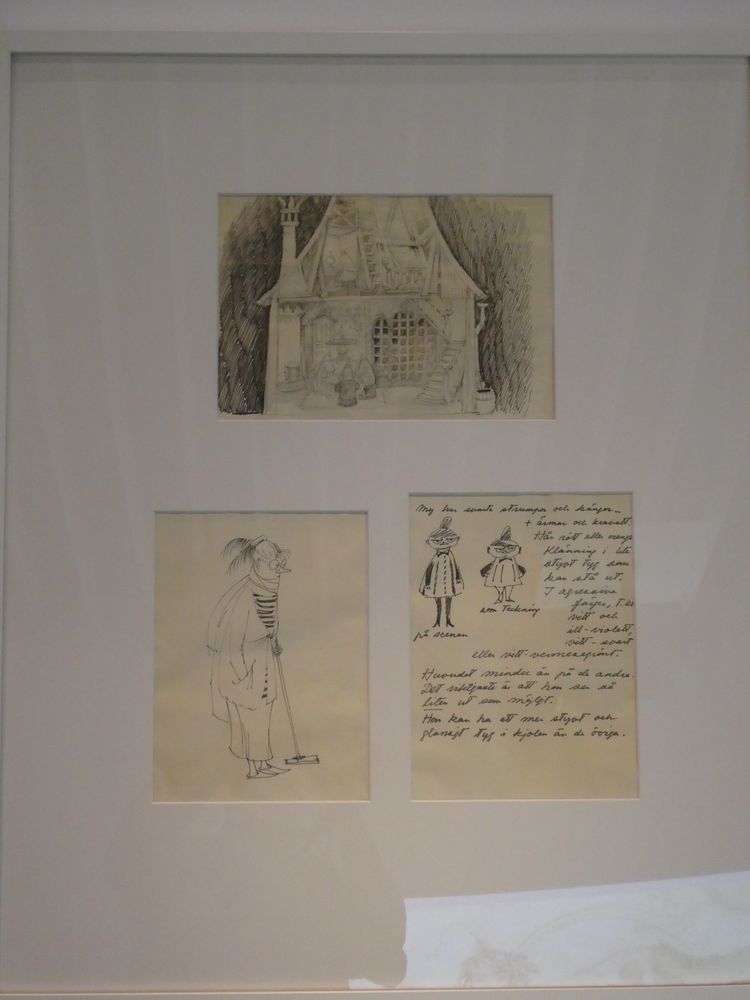 My har svarta strumpor och kängor –
+ ärmar och kravatt.
Hår rött eller orange
Klänning i lite
styvt tyg som
kan stå ut.
I agressiva
färger, t.ex
vitt och
ill-violett,
vitt-svart
eller vitt-veronesegrönt.
på scenen
som Teckning
Huvudet mindre än på de andra.
Det viktigaste är att hon ser så
liten ut som möjligt.
Hon kan ha ett mer styvt och
glansigt tyg i kjolen än de övriga.